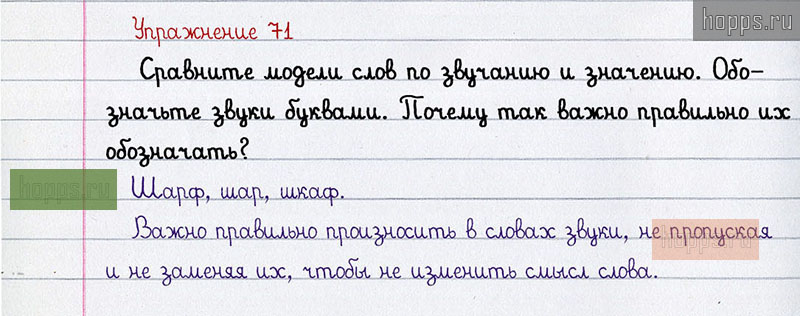 hopps.ru
Упражнение 71
Сравните модели слов по звучанию и значению. Обо-
значьте звуки буквами. Почему так важно правильно их
обозначать?
hopps.ru
Шарф, шар, шкаф.
Важно правильно произносить в словах звуки, не пропуская
hopps.ru
и не заменяя их, чтобы не изменить смысл слова.